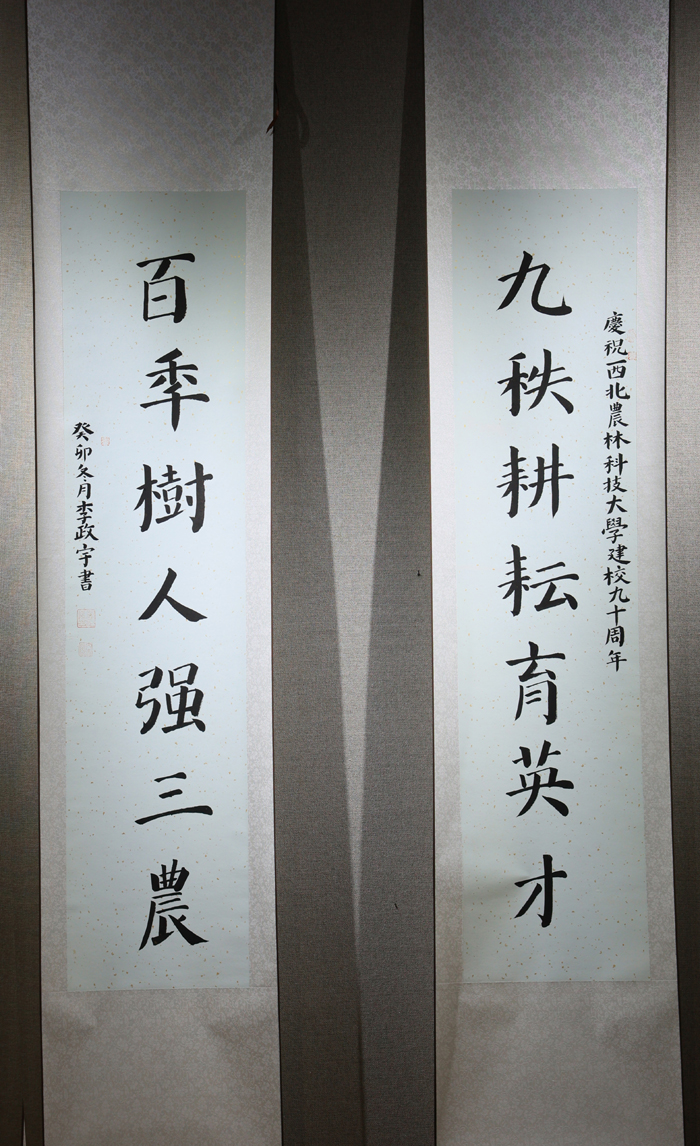 慶祝西北農林科技大學建校九十周年
九秩耕耘育英才
百年樹人强三農
癸卯冬月李政宇書